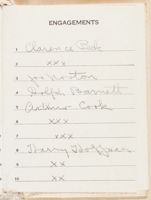 ENGAGEMENTS
1 Clarence
2 xxx
3 Joe Norton
4 Dolph Barnett
5 Arthur Cook
6 xxx
7 xxx
8 Harry Hoffman
9 xx
10 xx